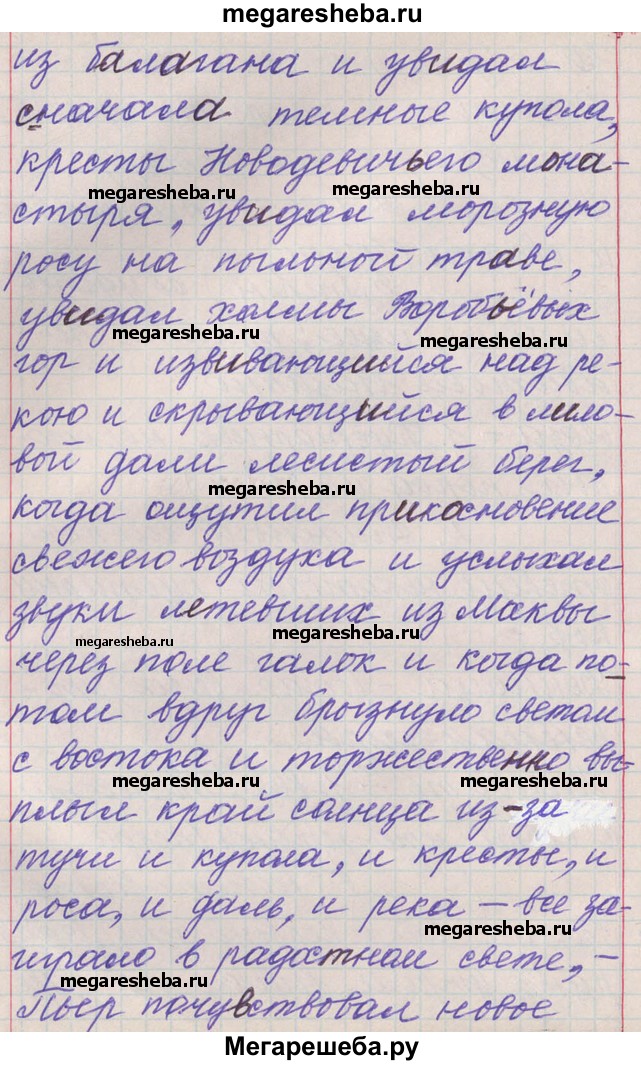 megaresheba.ru
из балагана и увидал
сначала темные купола,
кресты Новодевичьего мона-
megaresheba.ru megaresheba.ru
стыря, увидал морозную
росу на пыльной траве,
увидал холмы Воробьёвых
megaresheba.ru megaresheba.ru
гор и извивающийся над ре-
кою и скрывающийся в лило-
вой дали лесистый берег,
megaresheba.ru
когда ощутил прикосновение
свежего воздуха и услыхал
звуки летевших из Москвы
megaresheba.ru megaresheba.ru
через поле галок и когда по-
том вдруг брызнуло светом
с востока и торжественно вы-
megaresheba.ru megaresheba.ru
плыл край солнца из-за
тучи и купола, и кресты, и
роса, и даль, и река – все за-
megaresheba.ru
играло в радостном свете, –
megaresheba.ru
Пьер почувствовал новое
Мегарешеба.ру